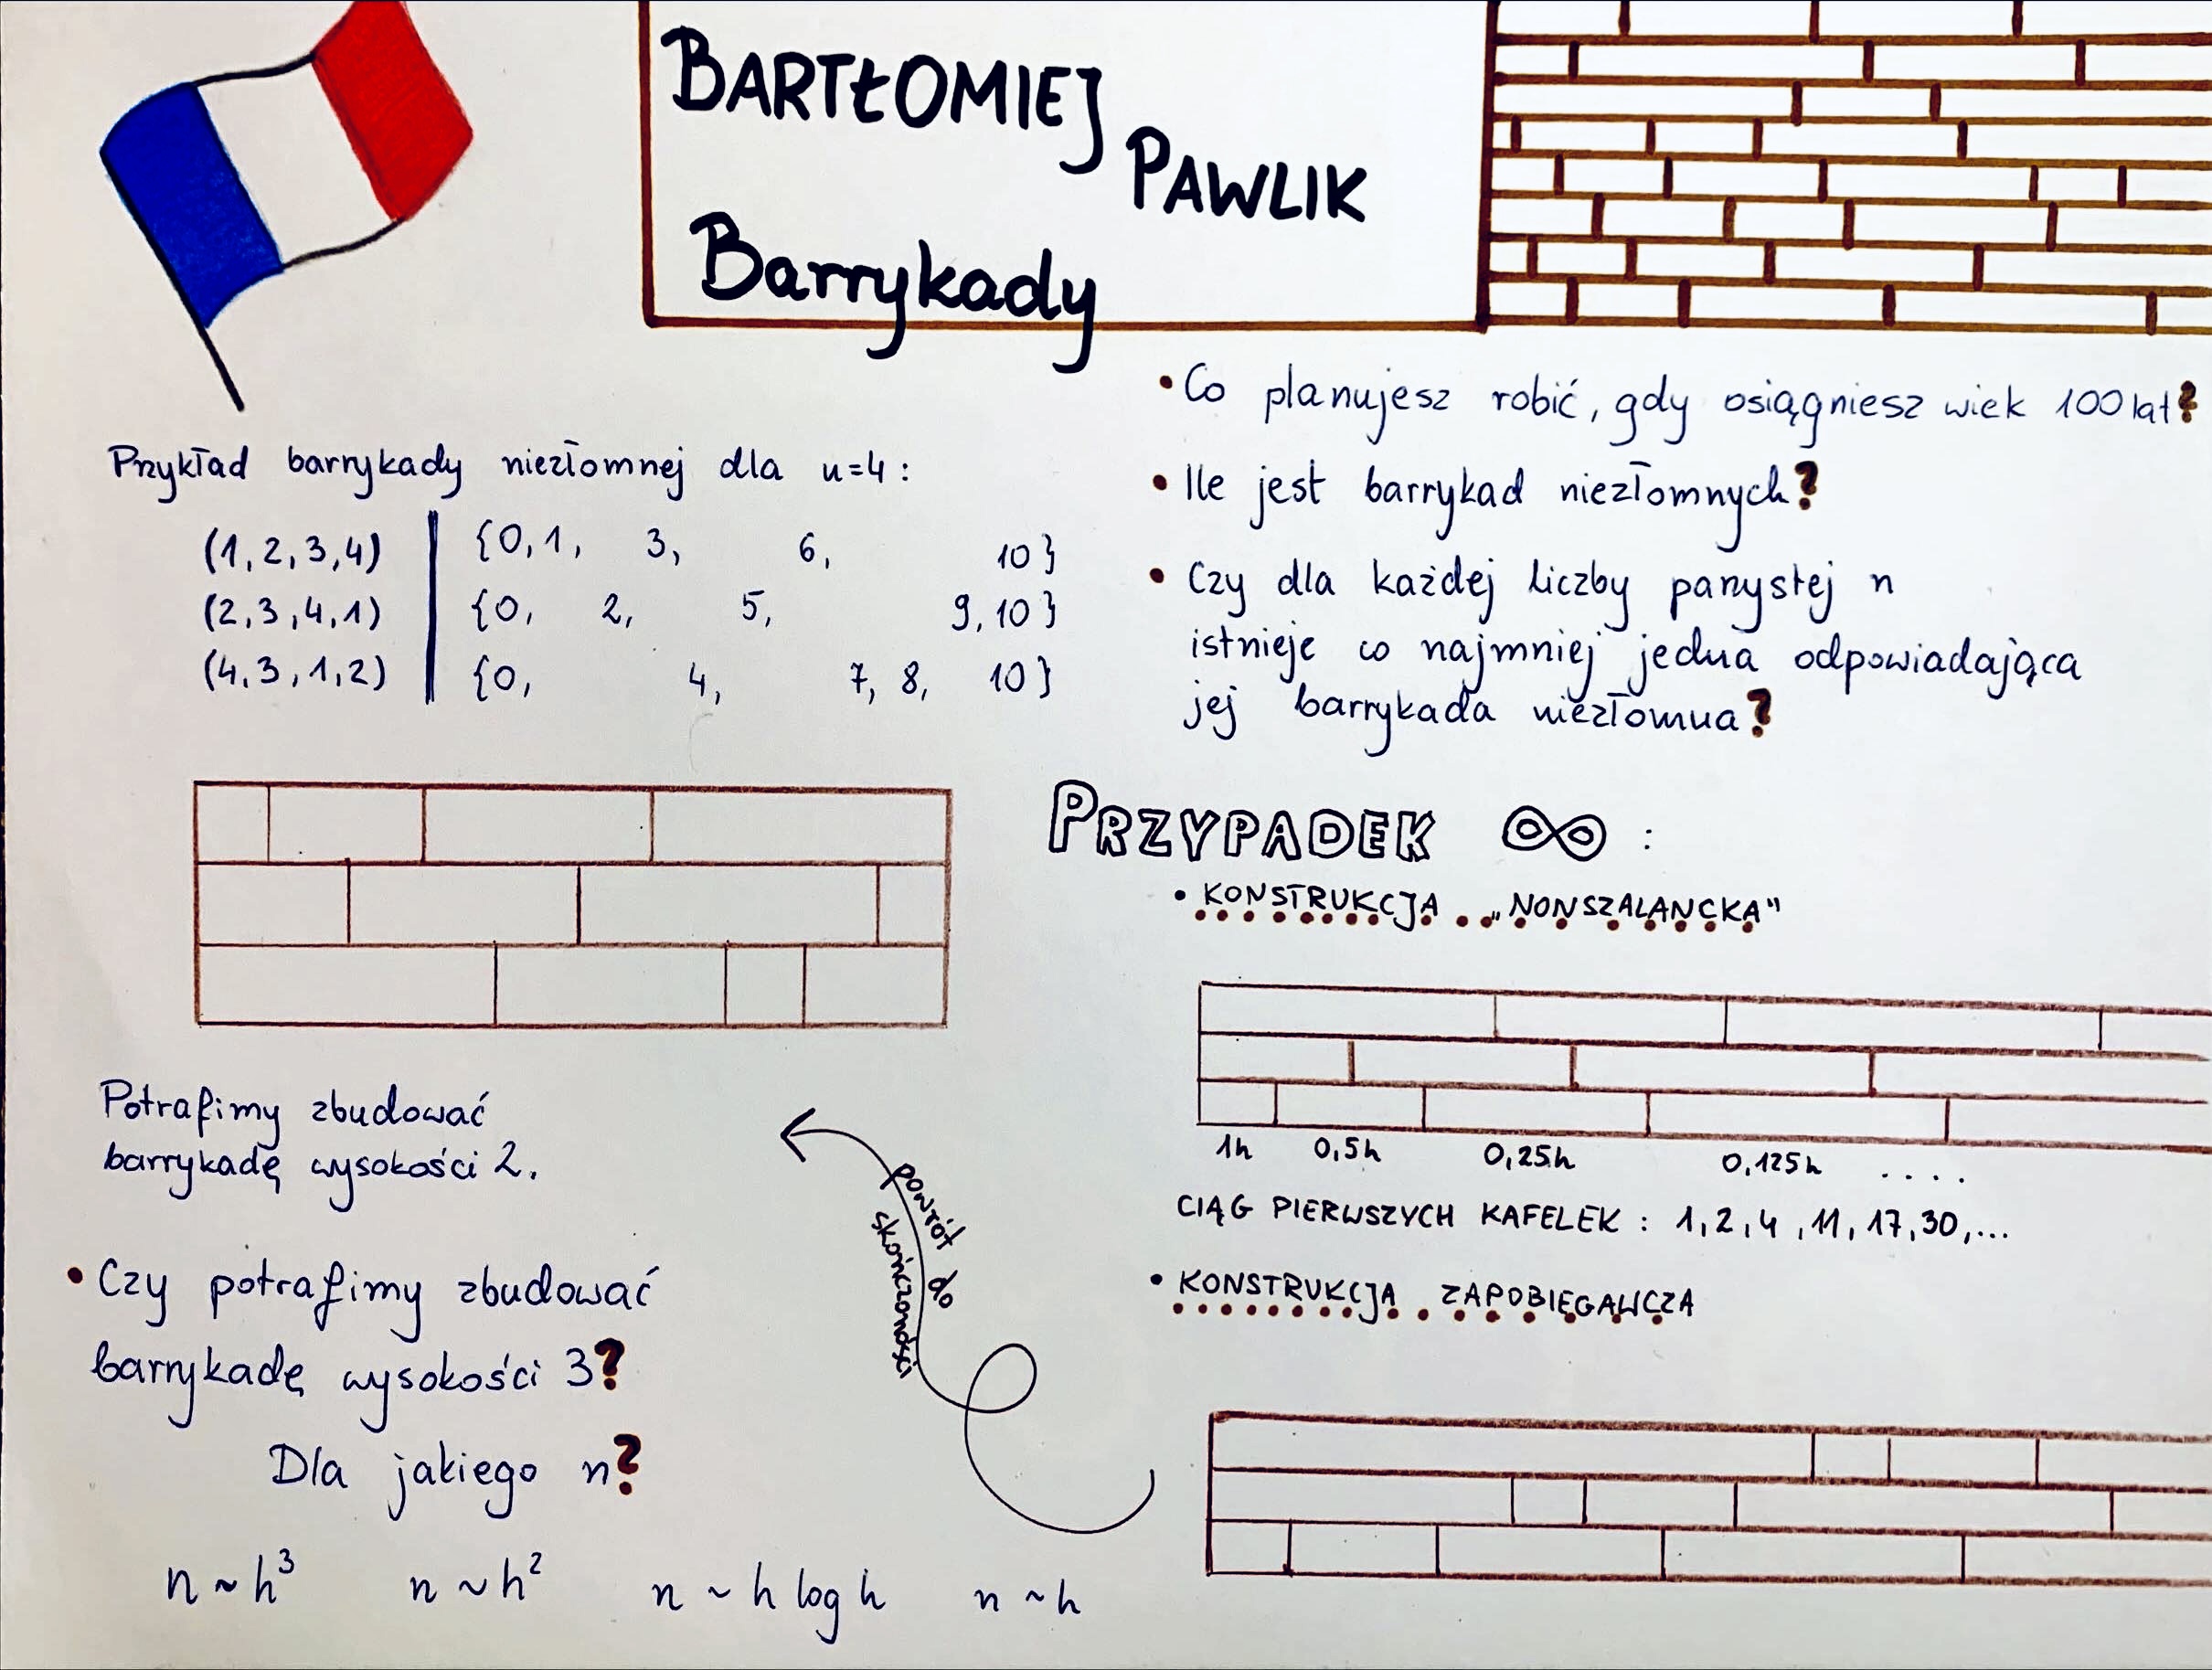 BARTŁOMIEJ
PAWLIK
Barrykady
Przykład barrykady niezłomnej dla n=4:
(1,2,3,4) {0,1, 3, 6, 10}
(2,3,4,1) {0, 2, 5, 9,10}
(4,3,1,2) {0, 4, 7, 8, 10}
Potrafimy zbudować
barrykadę wysokości 2.
• Czy potrafimy zbudować
barrykadę wysokości 3?
Dla jakiego n?
n ~ h³ n ~ h² n ~ h log h n ~ h
• Co planujesz robić, gdy osiągniesz wiek 100 lat?
• Ile jest barrykad niezłomnych?
• Czy dla każdej liczby parzystej n
istnieje co najmniej jedna odpowiadająca
jej barrykada niezłomna?
PRZYPADEK ∞:
• KONSTRUKCJA „NONSZALANCKA"
1h 0,5h 0,25h 0,125h ....
CIĄG PIERWSZYCH KAFELEK: 1,2,4,11,17,30,...
• KONSTRUKCJA ZAPOBIEGAWCZA
powrót do
skończoności